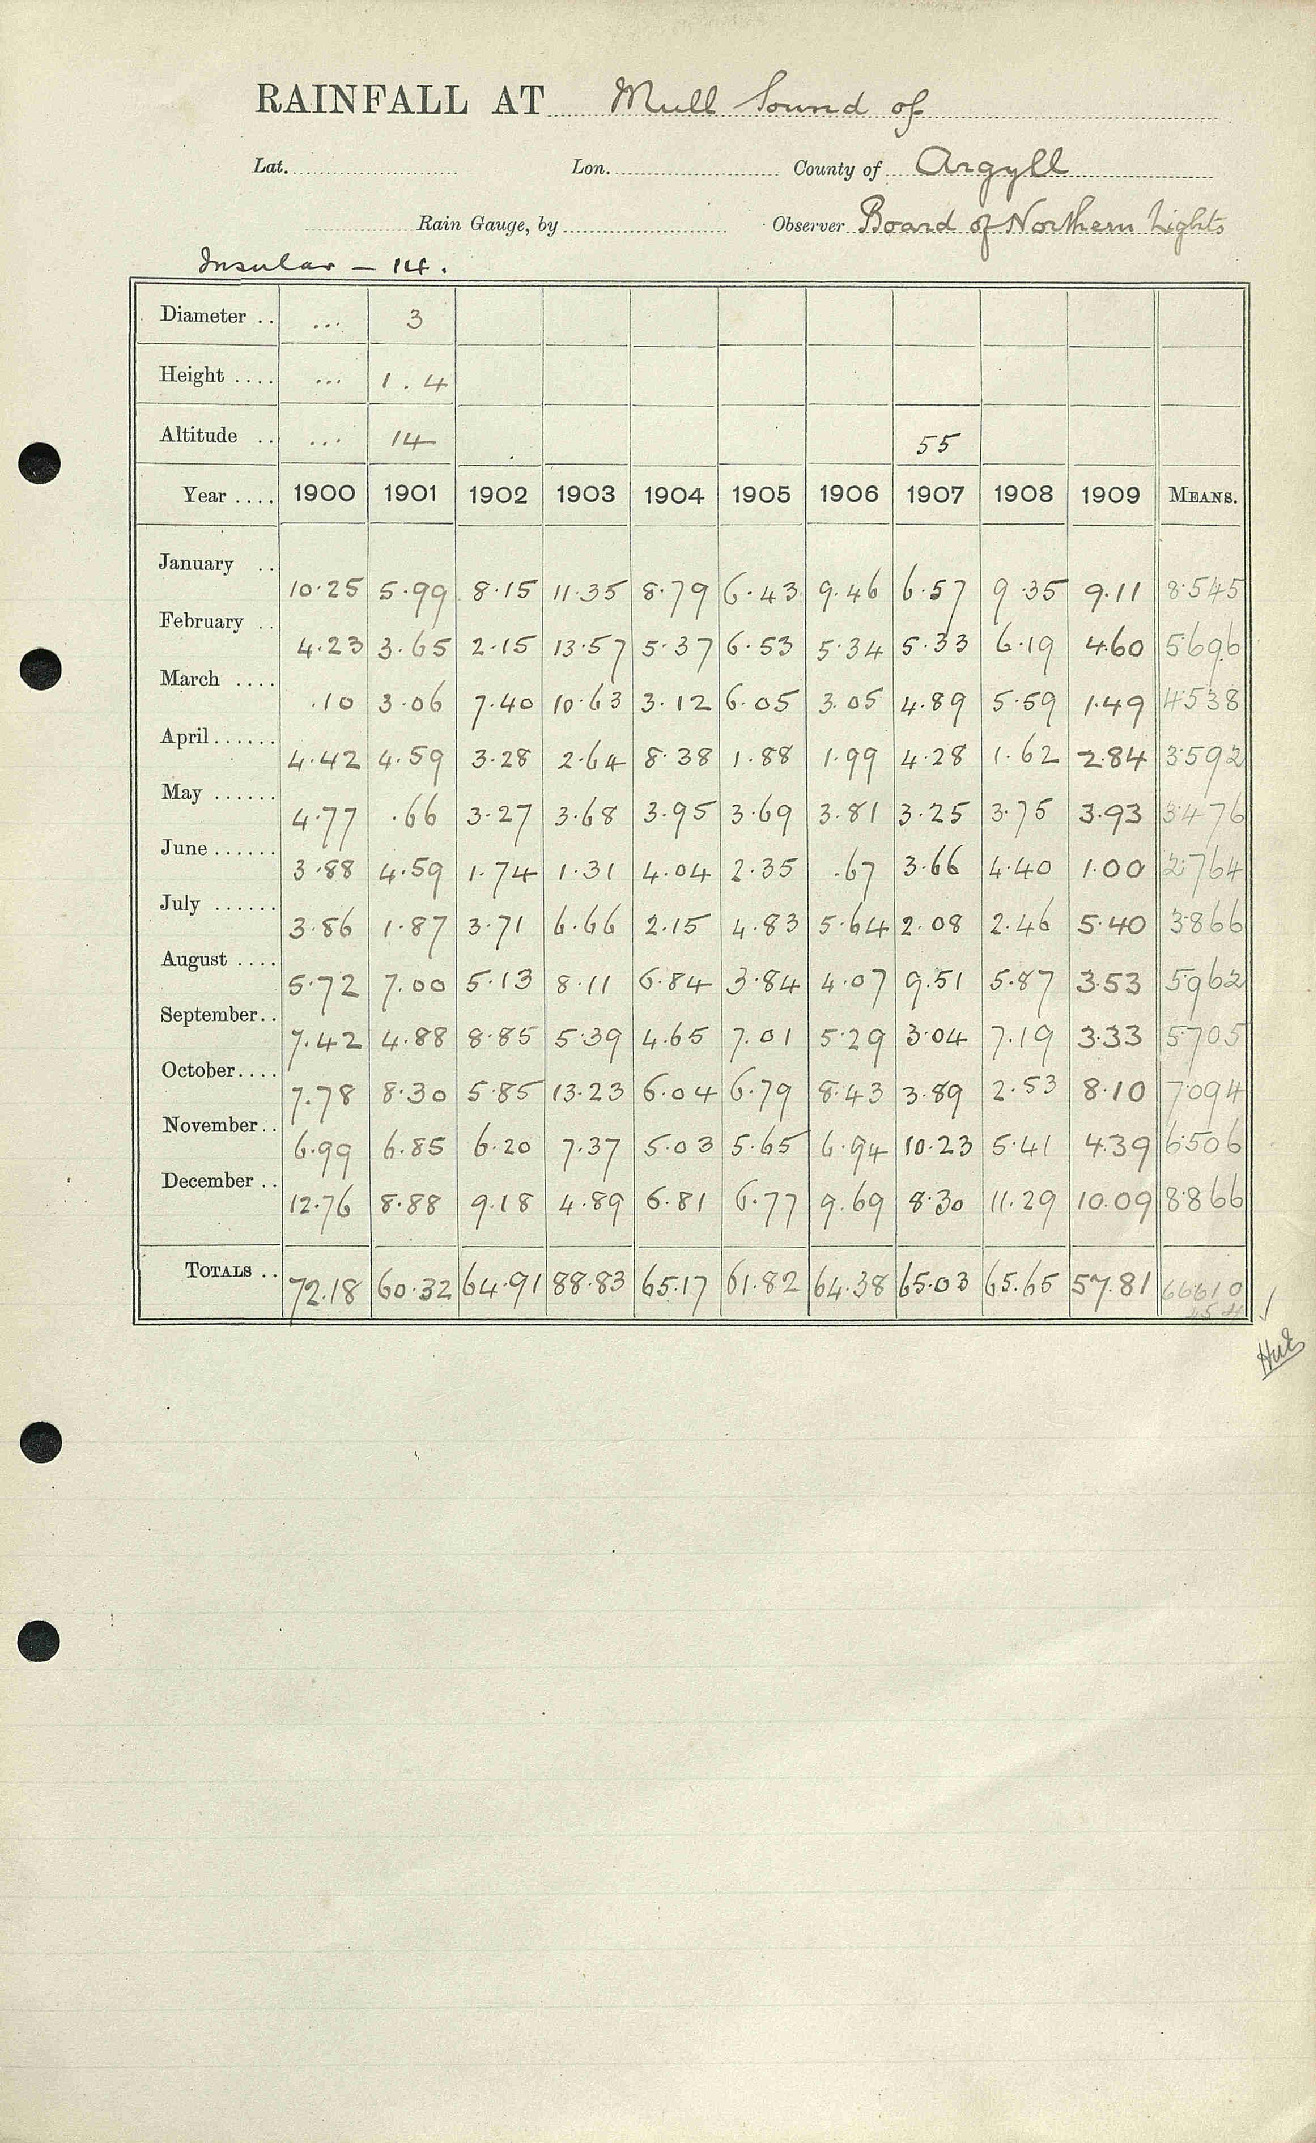 RAINFALL AT Mull Sound of
Lat. Lon. County of Argyll
Rain Gauge, by Observer Board of Northern Lights
Insular – 14.
Diameter .. ... 3
Height .... ... 1.4
Altitude .. ... 14 55
Year .... 1900 1901 1902 1903 1904 1905 1906 1907 1908 1909 MEANS.
January .. 10.25 5.99 8.15 11.35 8.79 6.43 9.46 6.57 9.35 9.11 8.545
February .. 4.23 3.65 2.15 13.57 5.37 6.53 5.34 5.33 6.19 4.60 5.696
March .... .10 3.06 7.40 10.63 3.12 6.05 3.05 4.89 5.59 1.49 4.538
April...... 4.42 4.59 3.28 2.64 8.38 1.88 1.99 4.28 1.62 2.84 3.592
May ...... 4.77 .66 3.27 3.68 3.95 3.69 3.81 3.25 3.75 3.93 3.476
June...... 3.88 4.59 1.74 1.31 4.04 2.35 .67 3.66 4.40 1.00 2.764
July ...... 3.86 1.87 3.71 6.66 2.15 4.83 5.64 2.08 2.46 5.40 3.866
August .... 5.72 7.00 5.13 8.11 6.84 3.84 4.07 9.51 5.87 3.53 5.962
September.. 7.42 4.88 8.85 5.39 4.65 7.01 5.29 3.04 7.19 3.33 5.705
October.... 7.78 8.30 5.85 13.23 6.04 6.79 8.43 3.89 2.53 8.10 7.094
November.. 6.99 6.85 6.20 7.37 5.03 5.65 6.94 10.23 5.41 4.39 6.506
December .. 12.76 8.88 9.18 4.89 6.81 6.77 9.69 8.30 11.29 10.09 8.866
TOTALS .. 72.18 60.32 64.91 88.83 65.17 61.82 64.38 65.03 65.65 57.81 66610